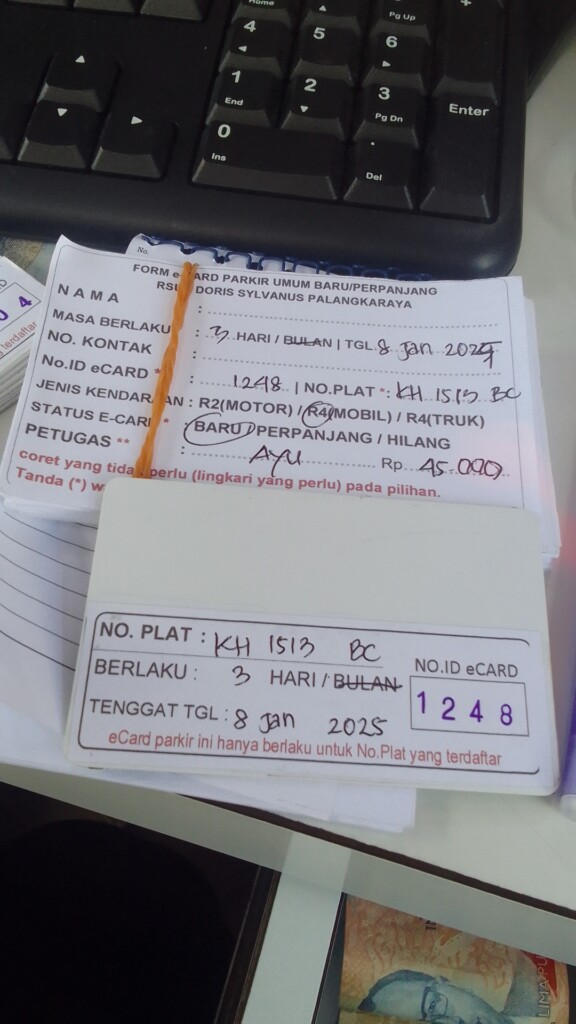 Home
Pg Up
+
4
5
6
1
End
2
3
Pg Dn
Enter
0
Ins
.
Del
No.
FORM e-CARD PARKIR UMUM BARU/PERPANJANG
DORIS SYLVANUS PALANGKARAYA
NAMA :
MASA BERLAKU : 3 HARI / BULAN | TGL 8 Jan
NO. KONTAK :
No.ID eCARD * : 1248 | NO.PLAT *: KH 1513 BC
JENIS KENDARAAN : R2(MOTOR) / R4(MOBIL) / R4(TRUK)
STATUS E-CARD * : BARU / PERPANJANG / HILANG
PETUGAS ** : AYU Rp. 45.000
coret yang tidak perlu (lingkari yang perlu) pada pilihan.
Tanda (*) w
0 4
terdaftar
NO. PLAT : KH 1513 BC
BERLAKU : 3 HARI / BULAN
NO.ID eCARD
1248
TENGGAT TGL : 8 Jan 2025
eCard parkir ini hanya berlaku untuk No.Plat yang terdaftar
LIMA PU